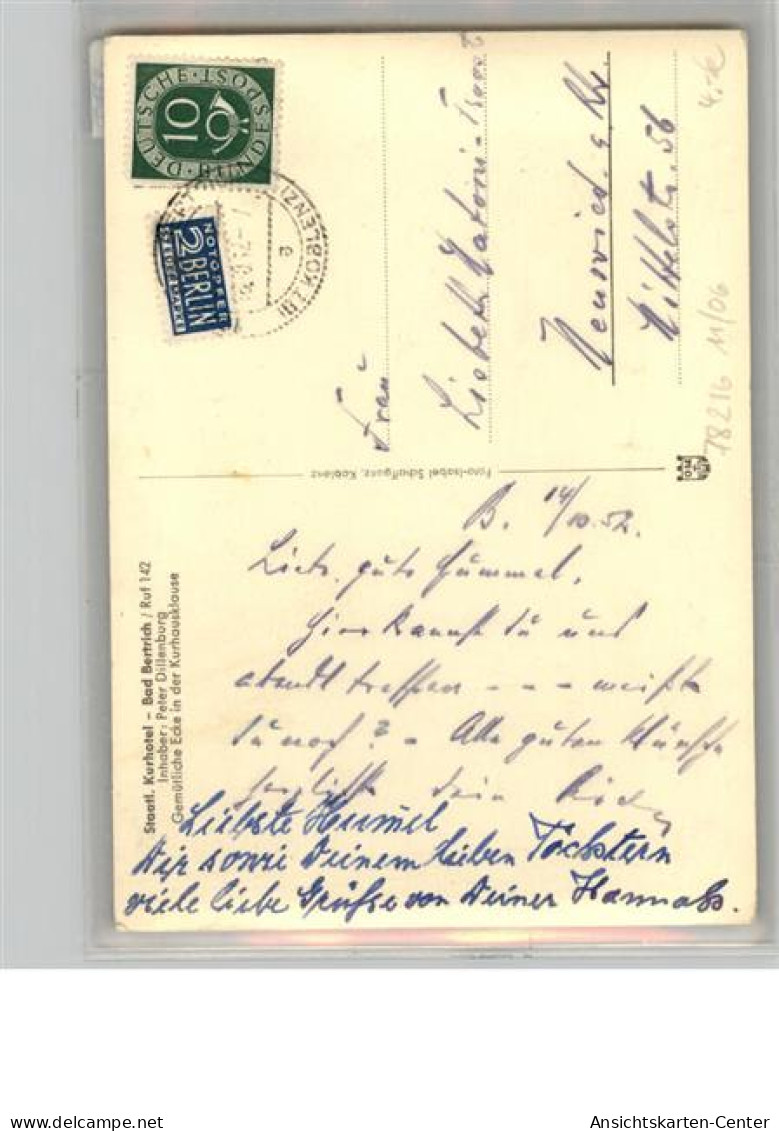 DEUTSCHE BUNDESPOST
10
NOTOPFER
2 BERLIN
STEUERMARKE
KOBLENZ
e
Frau
Lisbeth
Neuwied a. Rh.
Mittelstr. 56
4.-
78216 11/06
Foto-Isabel Schaffganz, Koblenz
Staatl. Kurhotel – Bad Bertrich / Ruf 142
Inhaber: Peter Dillenburg
Gemütliche Ecke in der Kurhausklause
B. 14/10.52.
Liebe, gute Hummel,
hier kannst Du uns
abends treffen - - - weißt
Du noch? – Alle guten Wünsche
herzlichst Dein
Liebste Hummel
Dir sowie Deinem lieben Töchstern
viele liebe Grüße von Deiner Hannah.
Ansichtskarten-Center